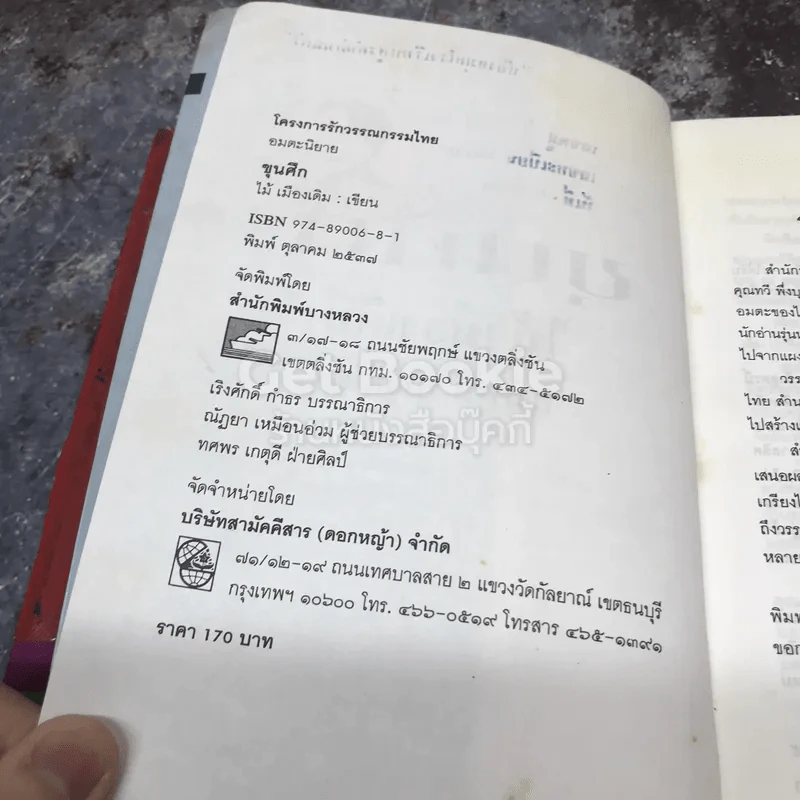 โครงการรักวรรณกรรมไทย
อมตะนิยาย
ขุนศึก
ไม้ เมืองเดิม : เขียน
ISBN 974-89006-8-1
พิมพ์ ตุลาคม ๒๕๓๗
จัดพิมพ์โดย
สำนักพิมพ์บางหลวง
๓/๑๗-๑๘ ถนนชัยพฤกษ์ แขวงตลิ่งชัน
เขตตลิ่งชัน กทม. ๑๐๑๗๐ โทร. ๔๓๔-๕๑๗๒
เริงศักดิ์ กำธร บรรณาธิการ
ณัฏยา เหมือนอ่วม ผู้ช่วยบรรณาธิการ
ทศพร เกตุดี ฝ่ายศิลป์
จัดจำหน่ายโดย
บริษัทสามัคคีสาร (ดอกหญ้า) จำกัด
๗๑/๑๒-๑๙ ถนนเทศบาลสาย ๒ แขวงวัดกัลยาณ์ เขตธนบุรี
กรุงเทพฯ ๑๐๖๐๐ โทร. ๔๖๖-๐๕๑๙ โทรสาร ๔๖๕-๑๓๙๑
ราคา 170 บาท
Get Bookie
ร้านหนังสือบุ๊คกี้
สำนัก
คุณทวี
อมตะของ
นักอ่านรุ่น
ไปจากแผง
วรร
ไทย สำน
ไปสร้าง
เสนอผล
ถึงวรร
หลาย
พิมพ์